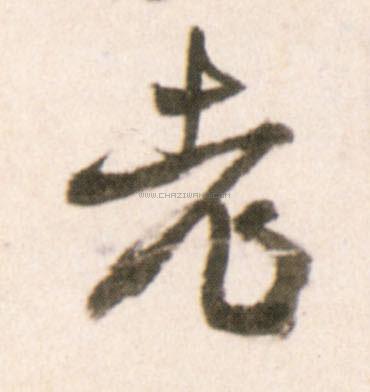 老
WWW.CHAZIWANG.COM